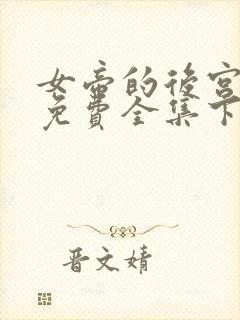 女帝的後宮
免費全集下
晋文婧